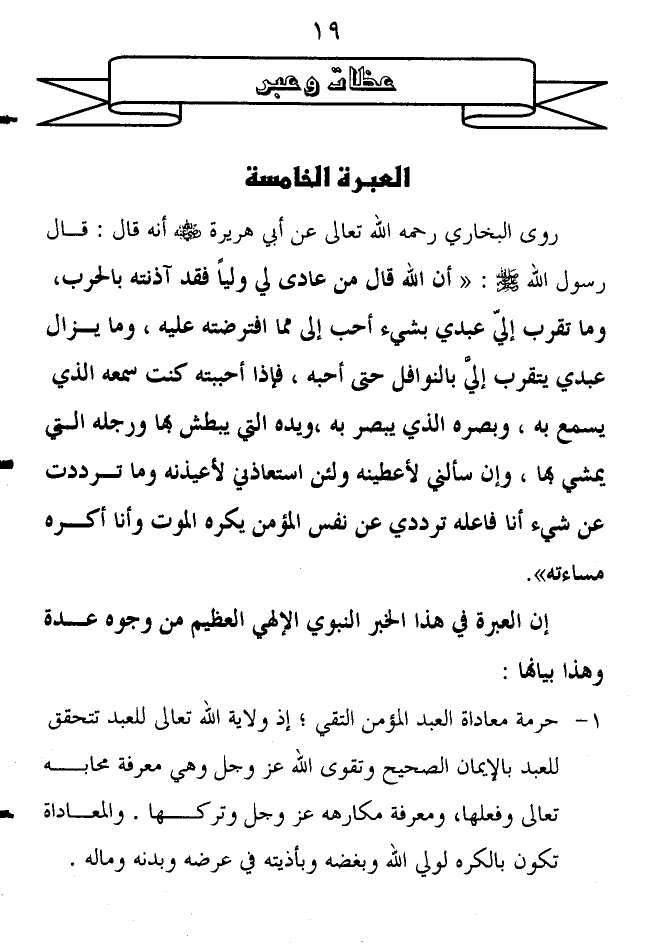 ١٩
عظات وعبر
العبرة الخامسة
روى البخاري رحمه الله تعالى عن أبي هريرة ﷺ أنه قال : قـــال
رسول الله ﷺ : « أن الله قال من عادى لي ولياً فقد آذنته بالحرب،
وما تقرب إليّ عبدي بشيء أحب إلى مما افترضته عليه ، وما يـــزال
عبدي يتقرب إليَّ بالنوافل حتى أحبه ، فإذا أحببته كنت سمعه الذي
يسمع به ، وبصره الذي يبصر به ،ويده التي يبطش بها ورجله الـــتي
يمشي بها ، وإن سألني لأعطينه ولئن استعاذني لأعيذنه وما تـــرددت
عن شيء أنا فاعله ترددي عن نفس المؤمن يكره الموت وأنا أكـــره
مساءته».
إن العبرة في هذا الخبر النبوي الإلهي العظيم من وجوه عـــدة
وهذا بيانها :
١- حرمة معاداة العبد المؤمن التقي ؛ إذ ولاية الله تعالى للعبد تتحقق
للعبد بالإيمان الصحيح وتقوى الله عز وجل وهي معرفة محابـــه
تعالى وفعلها، ومعرفة مكارهه عز وجل وتركـــها . والمعـــاداة
تكون بالكره لولي الله وبغضه وبأذيته في عرضه وبدنه وماله .